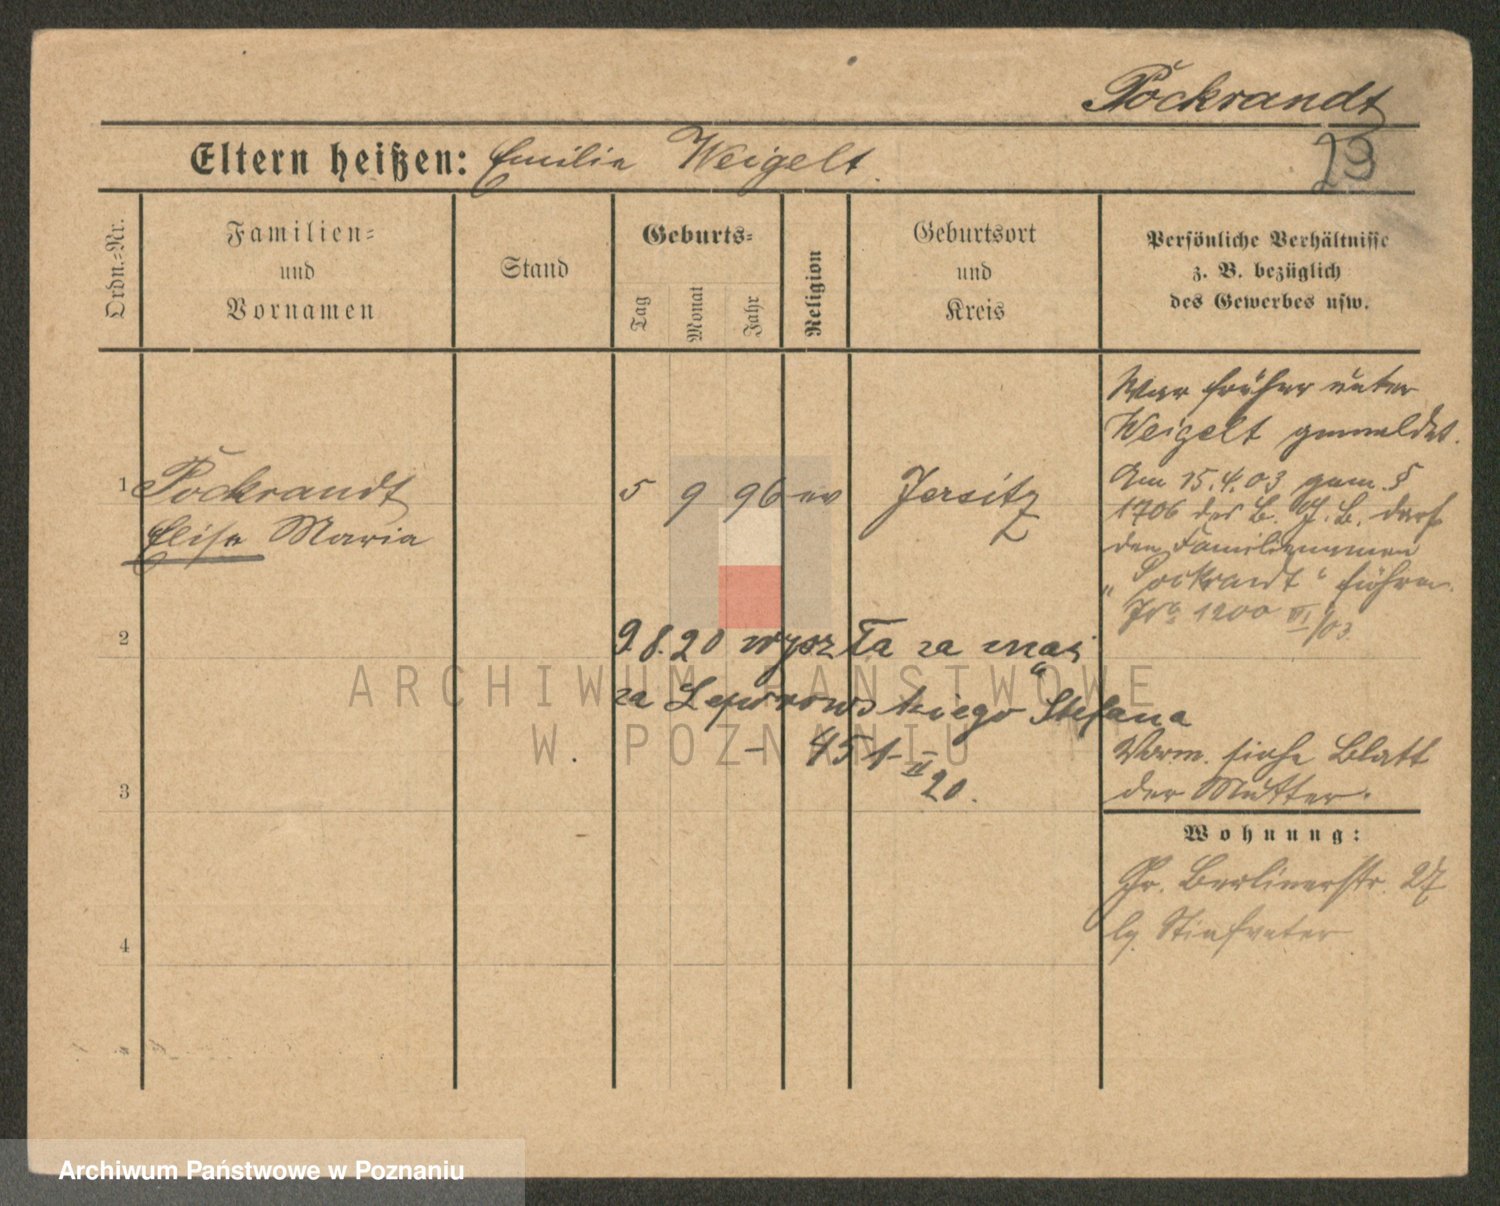 Pockrandt
Eltern heißen: Emilie Weigelt.
23
Ordn.-Nr.
Familien-
und
Vornamen
Stand
Geburts-
Tag
Monat
Jahr
Religion
Geburtsort
und
Kreis
Persönliche Verhältnisse
z. B. bezüglich
des Gewerbes usw.
War früher unter
Weigelt gemeldet.
1 Pockrandt 5 9 96 ev Jersitz
Elise Maria
Am 15.4.03 gem. §
1706 des B. G. B. darf
den Familiennamen
„Pockrandt“ führen.
1200 VI/03.
2
9.8.20 wyszła za mąż
za Leporowskiego Stefana
– 451 II
20.
Verm. siehe Blatt
der Mutter.
3
Wohnung:
Gr. Berlinerstr. 27
4
Stiefvater
ARCHIWUM PAŃSTWOWE
W POZNANIU
Archiwum Państwowe w Poznaniu